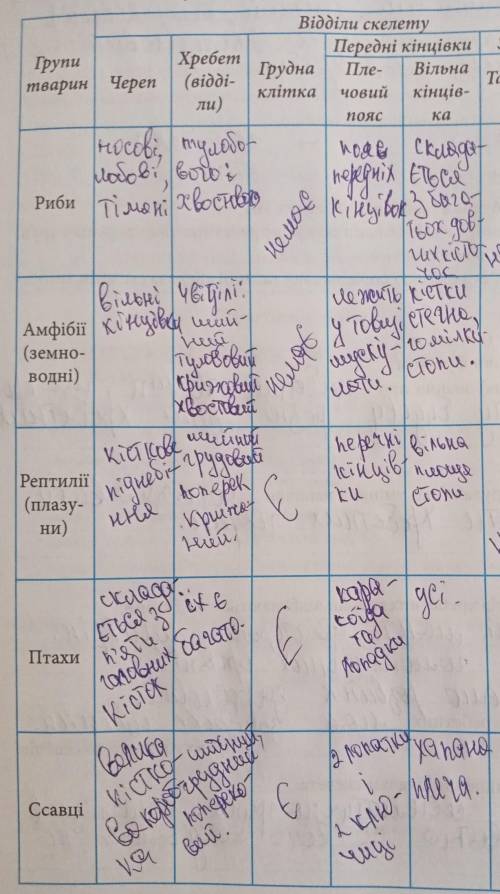 Відділи скелету
Групи тварин
Череп
Хребет (відді-
ли)
Грудна клітка
Передні кінцівки
Пле-
човий
пояс
Вільна
кінців-
ка
Риби
носові,
лобові,
тімяні
тулобо-
вого і
хвостового
немає
пояс
передніх
кінцівок
склада-
ється
з бага-
тьох дов-
гих кісто
чок
Амфібії
(земно-
водні)
вільні
кінцівки
4 відділі:
ший-
ний
тулововий
крижовий
хвостовий
немає
лежить
у товщі
муску-
латы.
кістки
стегна,
гомілки
стопи.
Рептилії
(плазу-
ни)
кісткове
піднебі-
ння
шийний
грудовий
поперек
криже-
ний.
Є
перечні
кінців-
ки
вільна
площа
стопи
Птахи
склада-
ється з
п'яти
головних
кісток
їх є
багато.
Є
кара-
коїда
та
лопадка
усі
Ссавці
велика
кістко-
ва коробо-
ка
шийний,
грудний,
попереко-
вий.
Є
2 лопатки
і
2 клю-
чиці
плеча.